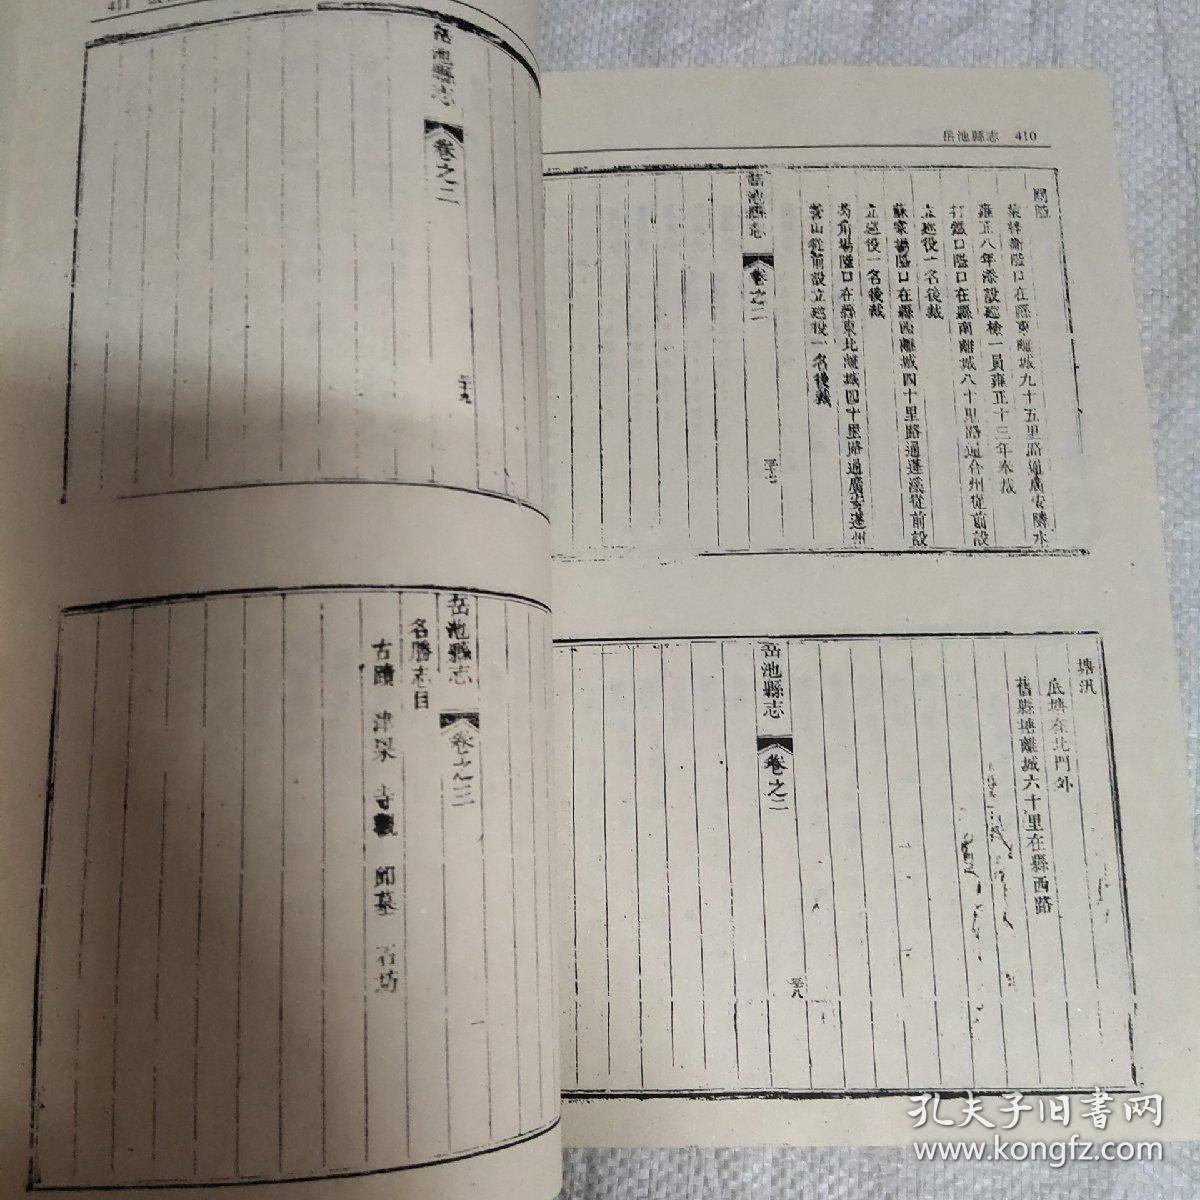 岳池縣志 410
關隘
梓衛隘口在縣東離城九十五里路通廣安隣水
雍正八年添設巡檢一員雍正十三年奉裁
打鐵口隘口在縣南離城八十里路通合州從前設
立巡役一名後裁
蘇家場隘口在縣西離城四十里路通蓬溪從前設
立巡役一名後裁
角場隘口在縣東北離城四十里路通廣安蓬州
營山從前設立巡役一名後裁
岳池縣志 卷之二
塘汛
底塘在北門外
舊縣塘離城六十里在縣西路
岳池縣志 卷之二 三十八
411
岳池縣志 卷之二 三十九
岳池縣志 卷之三
名勝志目
古蹟 津梁 寺觀 邱墓 石坊
孔夫子旧書网
www.kongfz.com